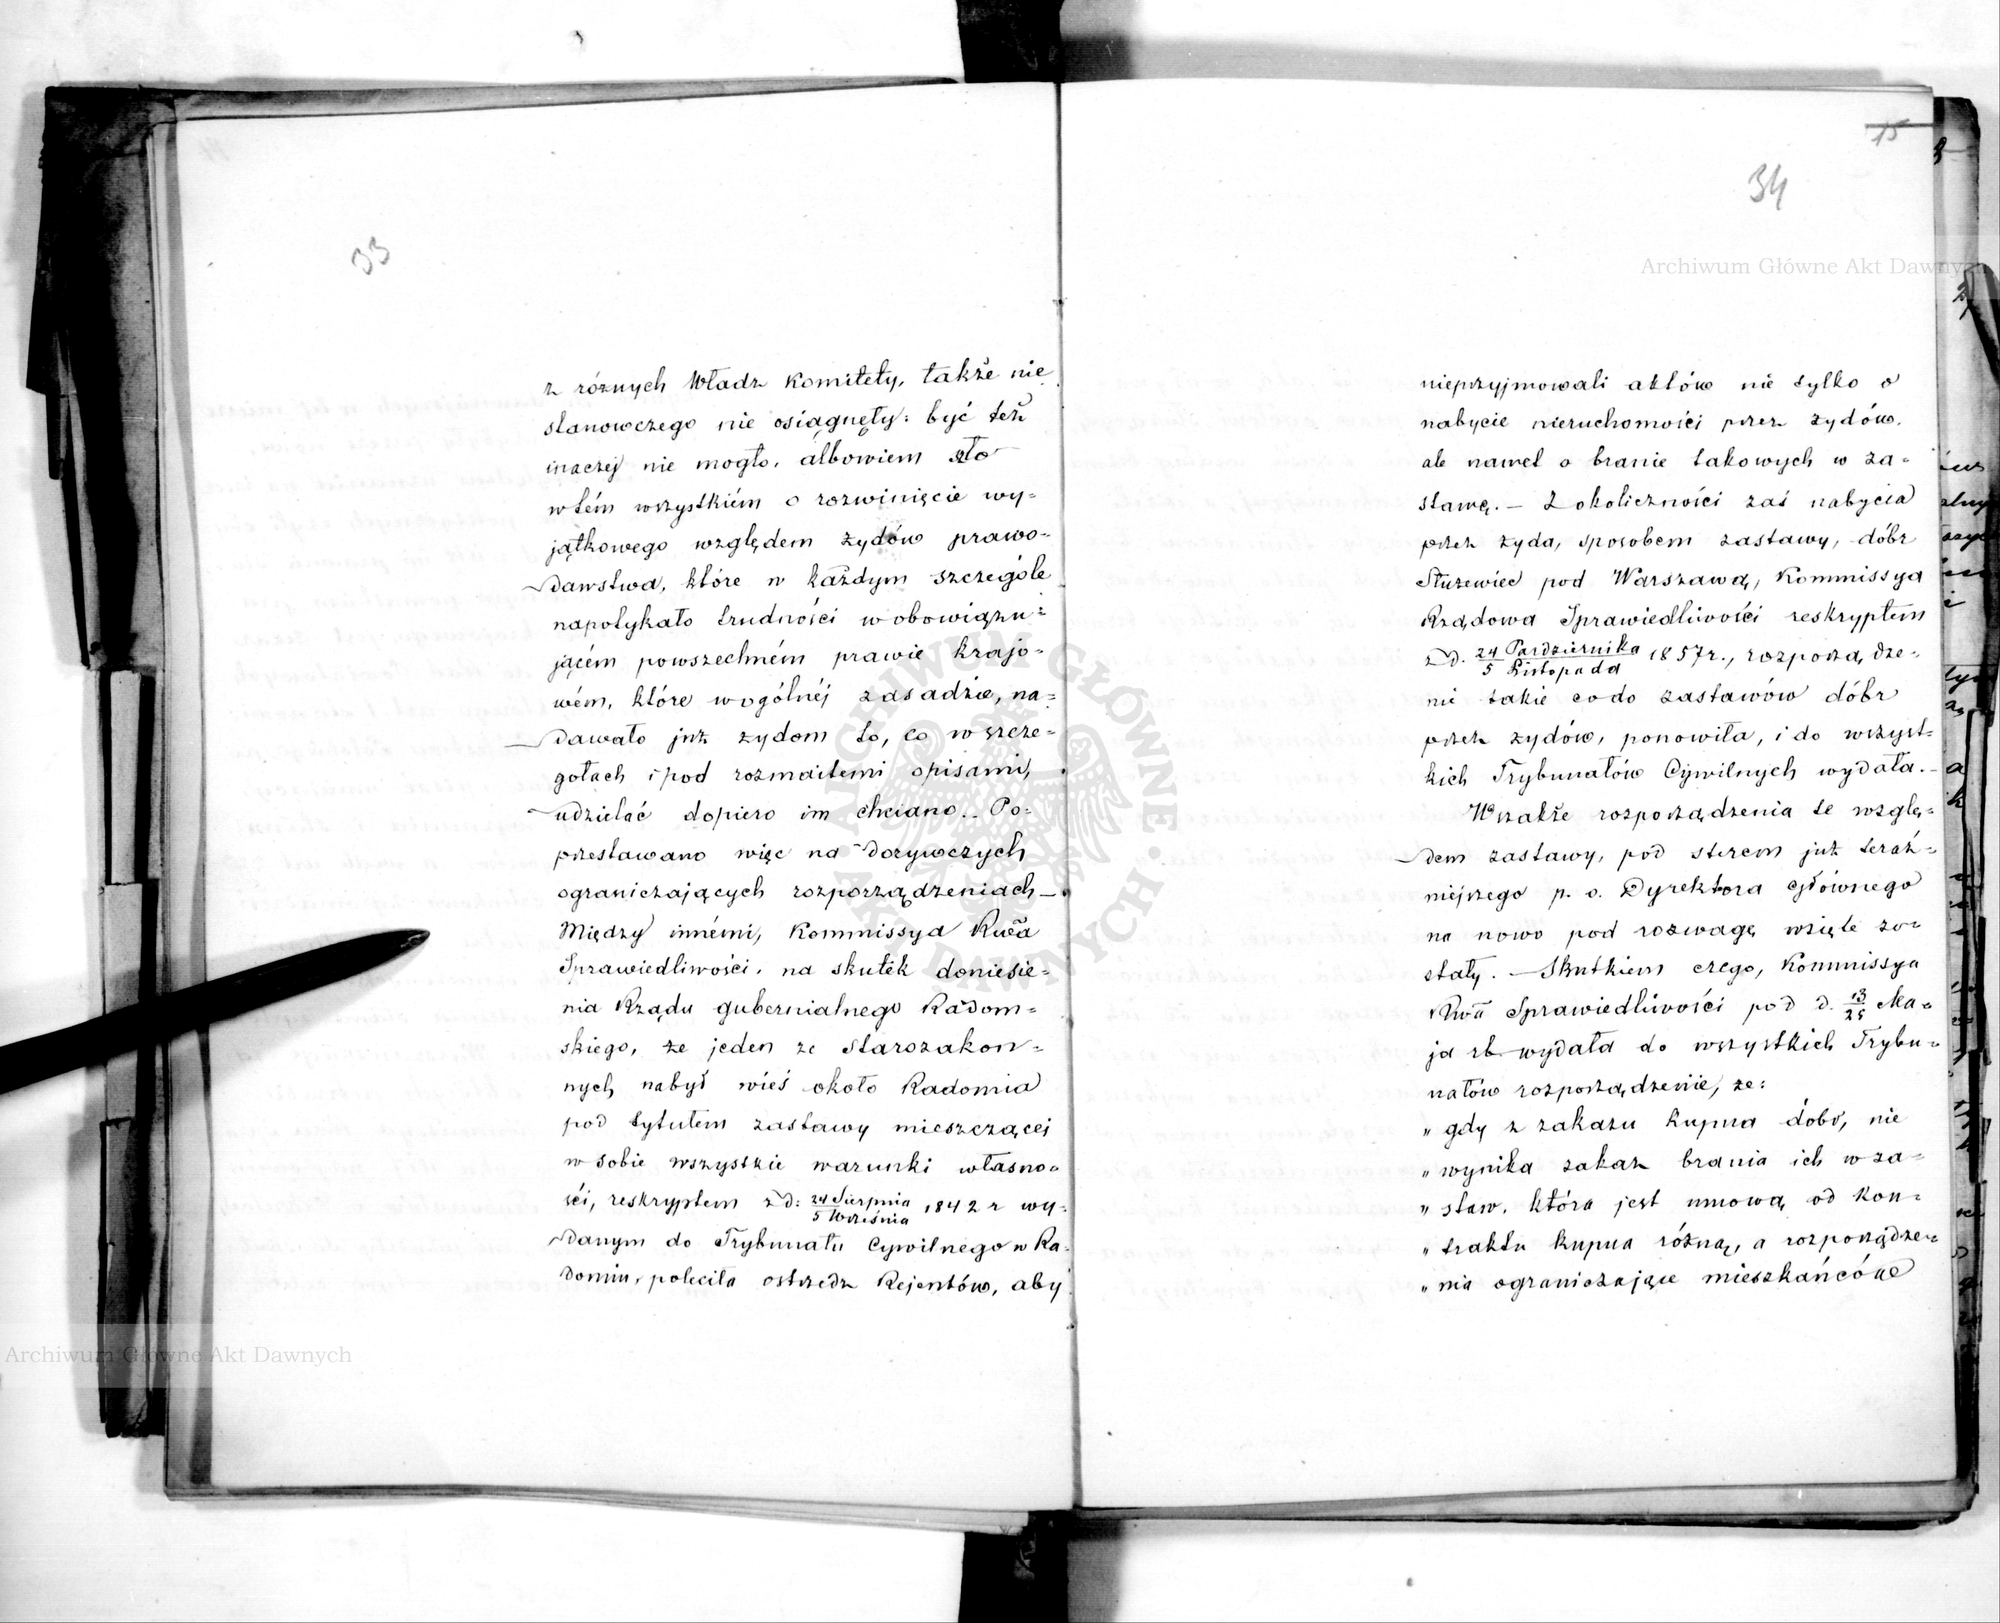 33
z różnych Władz Komitety, także nic
stanowczego nie osiągnęły: być też
inaczej nie mogło, albowiem szło
w tém wszystkiém o rozwinięcie wy-
jątkowego względem żydów prawo-
dawstwa, które w każdym szczególe
napotykało trudności w obowiązu-
jącém powszechném prawie krajo-
wém, które w ogólnéj zasadzie, na-
dawało już żydom to, co w szcze-
gołach i pod rozmaitemi opisami,
udzielać dopiero im chciano. Po-
przestawano więc na dorywczych
ograniczających rozporządzeniach –
Między innémi, Kommissya Rwa
Sprawiedliwości, na skutek doniesie-
nia Rządu gubernialnego Radom-
skiego, że jeden ze Starozakon-
nych nabył wieś około Radomia
pod tytułem zastawy mieszczącej
w sobie wszystkie warunki własno-
ści, reskryptem z d: 24 Sierpnia / 5 Września 1842 r wy-
danym do Trybunału Cywilnego w Ra-
domiu, poleciła ostrzedz Rejentów, aby
15
34
nieprzyjmowali aktów nie tylko o
nabycie nieruchomości przez żydów,
ale nawet o branie takowych w za-
stawę. – Z okoliczności zaś nabycia
przez żyda, sposobem zastawy, dóbr
Służewiec pod Warszawą, Kommissya
Rządowa Sprawiedliwości reskryptem
z d. 24 Października / 5 Listopada 1857 r., rozporządze-
nie takie co do zastawów dóbr
przez żydów, ponowiła, i do wszyst-
kich Trybunałów Cywilnych wydała. –
Wszakże rozporządzenia te wzglę-
dem zastawy, pod sterem już teraź-
niejszego p. o. Dyrektora Głównego
na nowo pod rozwagę wzięte zo-
stały. – Skutkiem czego, Kommissya
Rwa Sprawiedliwości pod d. 13/25 Ma-
ja rb wydała do wszystkich Trybu-
nałów rozporządzenie, że:
„ gdy z zakazu kupna dóbr, nie
„ wynika zakaz brania ich w za-
„ staw, która jest umową od kon-
„ traktu kupna różną, a rozporządze-
„ nia ograniczające mieszkańców
Archiwum Główne Akt Dawnych
Archiwum Główne Akt Dawnych
ARCHIWUM GŁÓWNE AKT DAWNYCH